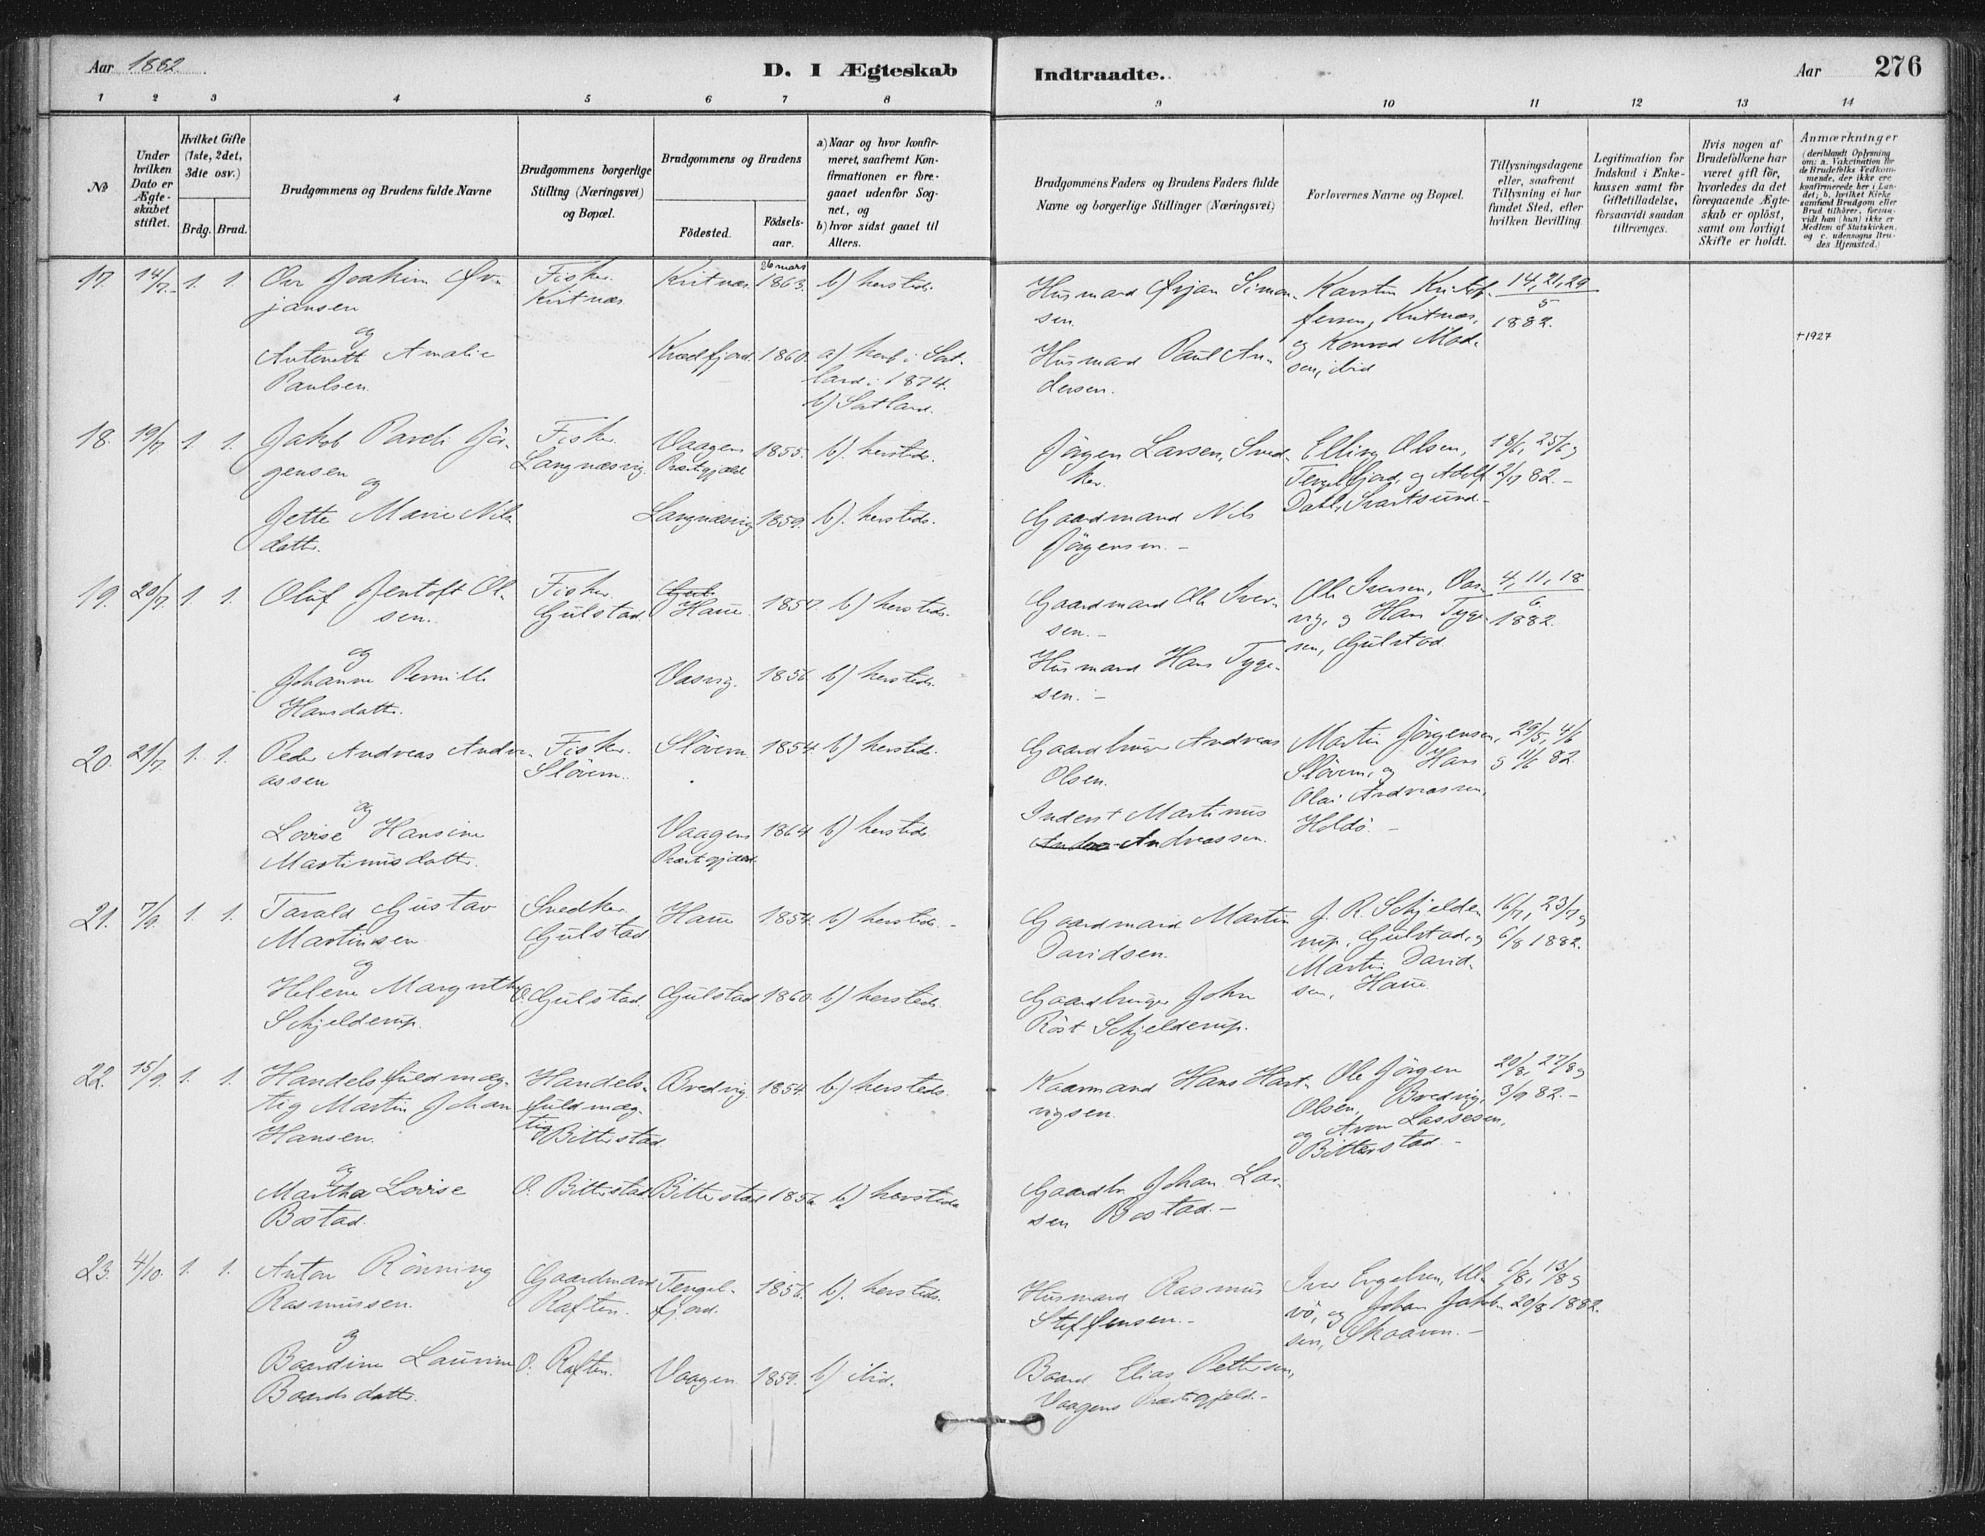 Aar 1882
D. I Ægteskab
Indtraadte.
Aar
276
1 2 3 4 5 6 7 8 9 10 11 12 13 14
№
Under hvilken Dato er Ægteskabet stiftet.
Hvilket Gifte (1ste, 2det, 3die osv.)
Brdg. Brud.
Brudgommens og Brudens fulde Navne
Brudgommens borgerlige Stilling (Næringsvei) og Bopæl.
Brudgommens og Brudens
Födested.
Födsels-aar.
a) Naar og hvor konfirmeret, saafremt Konfirmationen er foregaaet udenfor Sognet, og
b) hvor sidst gaaet til Alters.
Brudgommens Faders og Brudens Faders fulde Navne og borgerlige Stillinger (Næringsvei)
Forlovernes Navne og Bopæl.
Tillysningsdagene eller, saafremt Tillysning ei har fundet Sted, efter hvilken Bevilling
Legitimation for Indskud i Enkekassen samt for Giftetilladelse, forsaavidt saadan tiltrænges.
Hvis nogen af Brudefolkene har været gift før, hvorledes da det foregaaende Ægteskab er oplöst, samt om lovligt Skifte er holdt.
Anmærkninger
(deriblandt Oplysning om: a. Vakcination for de Brudefolks Vedkommende, der ikke ere konfirmerede her i Landet; b. hvilket Kirkesamfund Brudgom eller Brud tilhörer, forsaavidt han (hun) ikke er Medlem af Statskirken, og c. udensogns Brudes Hjemsted.)
17. 14/7. 1. 1. Ove Joakim Ørjansen
Fisker. Kvitnæs.
Kvitnæs. 26 mars 1863. b) hersteds.
Husmand Ørjan Simonsen.
Karsten Kristoffersen, Kvitnæs, og Konrad Madsen, ibid
14, 21, 29/5 1882.
og
Antonett Amalie Paulsen.
Kvædfjord. 1860. a) herb. i Sortland i 1874. b) Sortland.
Husmand Paul Andersen.
+1927
18. 19/7 1. 1. Jakob Pareli Jörgensen
Fisker. Langnæsvig.
Vaagens Præstegjæld 1855. b). hersteds.
Jörgen Larsen, Snedker.
Elling Olsen, Tengelfjord, og Adolf Dahl, Svartsund.-
18/6, 25/6 og 2/7 82.-
og
Jette Marie Nilsdatter.
Langnæsvig 1859. b). hersteds.
Gaardmand Nils Jörgensen.-
19. 20/7 1. 1. Oluf Jentoft Olsen.
Fisker. Gulstad.
Haue. 1857 b) hersteds.
Gaardmand Ole Iversen.-
Ole Iversen, Vasvig, og Hans Tygesen, Gulstad.
4, 11, 18/6 1882.
og
Johanne Pernille Hansdatter.
Vasvig. 1856 b) hersteds.
Husmand Hans Tygesen.-
20. 21/7 1. 1. Peder Andreas Andreassen
Fisker. Slövern.
Slövern. 1854 b) hersteds.
Gaardbruger Andreas Olsen.
Martin Jörgensen, Slövern, og Hans Olai Andreassen, Holdö.-
29/5, 4/6 og 11/6 82
og
Lovise Hansine Martinusdatter.
Vaagens Præstegjæld. 1864 b) hersteds
Inderst Martinus Andreassen.
21. 7/9. 1. 1. Tarald Gustav Martinssen
Snedker. Gulstad
Haue 1854. b) hersteds.-
Gaardmand Martin Davidsen.
J. R. Schjelderup, Gulstad, og Martin Davidsen, Haue
16/7, 23/7 og 6/8 1882.
og
Helene Margrethe Schjelderup.
O. Gulstad. Gulstad 1860. b) hersteds.
Gaardbruger John Röst Schjelderup.
22. 15/9. 1. 1. Handelsfuldmægtig Martin Johan Hansen.
Handelsfuldmægtig, Bitterstad
Bredvig. 1854. b) hersteds.
Kaarmand Hans Hartvigsen.
Ole Jörgen Olsen, Bredvig, og Aron Lassesen, Bitterstad.-
20/8, 27/8 og 3/9 82.-
og
Martha Lovise Bostad.
O. Bitterstad Bitterstad 1856 b) hersteds
Gaardbr. Johan Larsen Bostad.-
23. 4/10. 1. 1. Anton Rönning Rasmussen.
Gaardmand Raften.
Tengelfjord. 1856. b). hersteds.
Husmand Rasmus Steffensen.-
Iver Engelsen, Ulvö, og Johan Jakobsen, Skaaren.-
6/8, 13/8 og 20/8 1882.
og
Baardine Laurine Baardsdatter.
O. Raften. Vaagen 1859. b) ibid.
Baard Elias Pettersen, Vaagens Præstegjeld.-